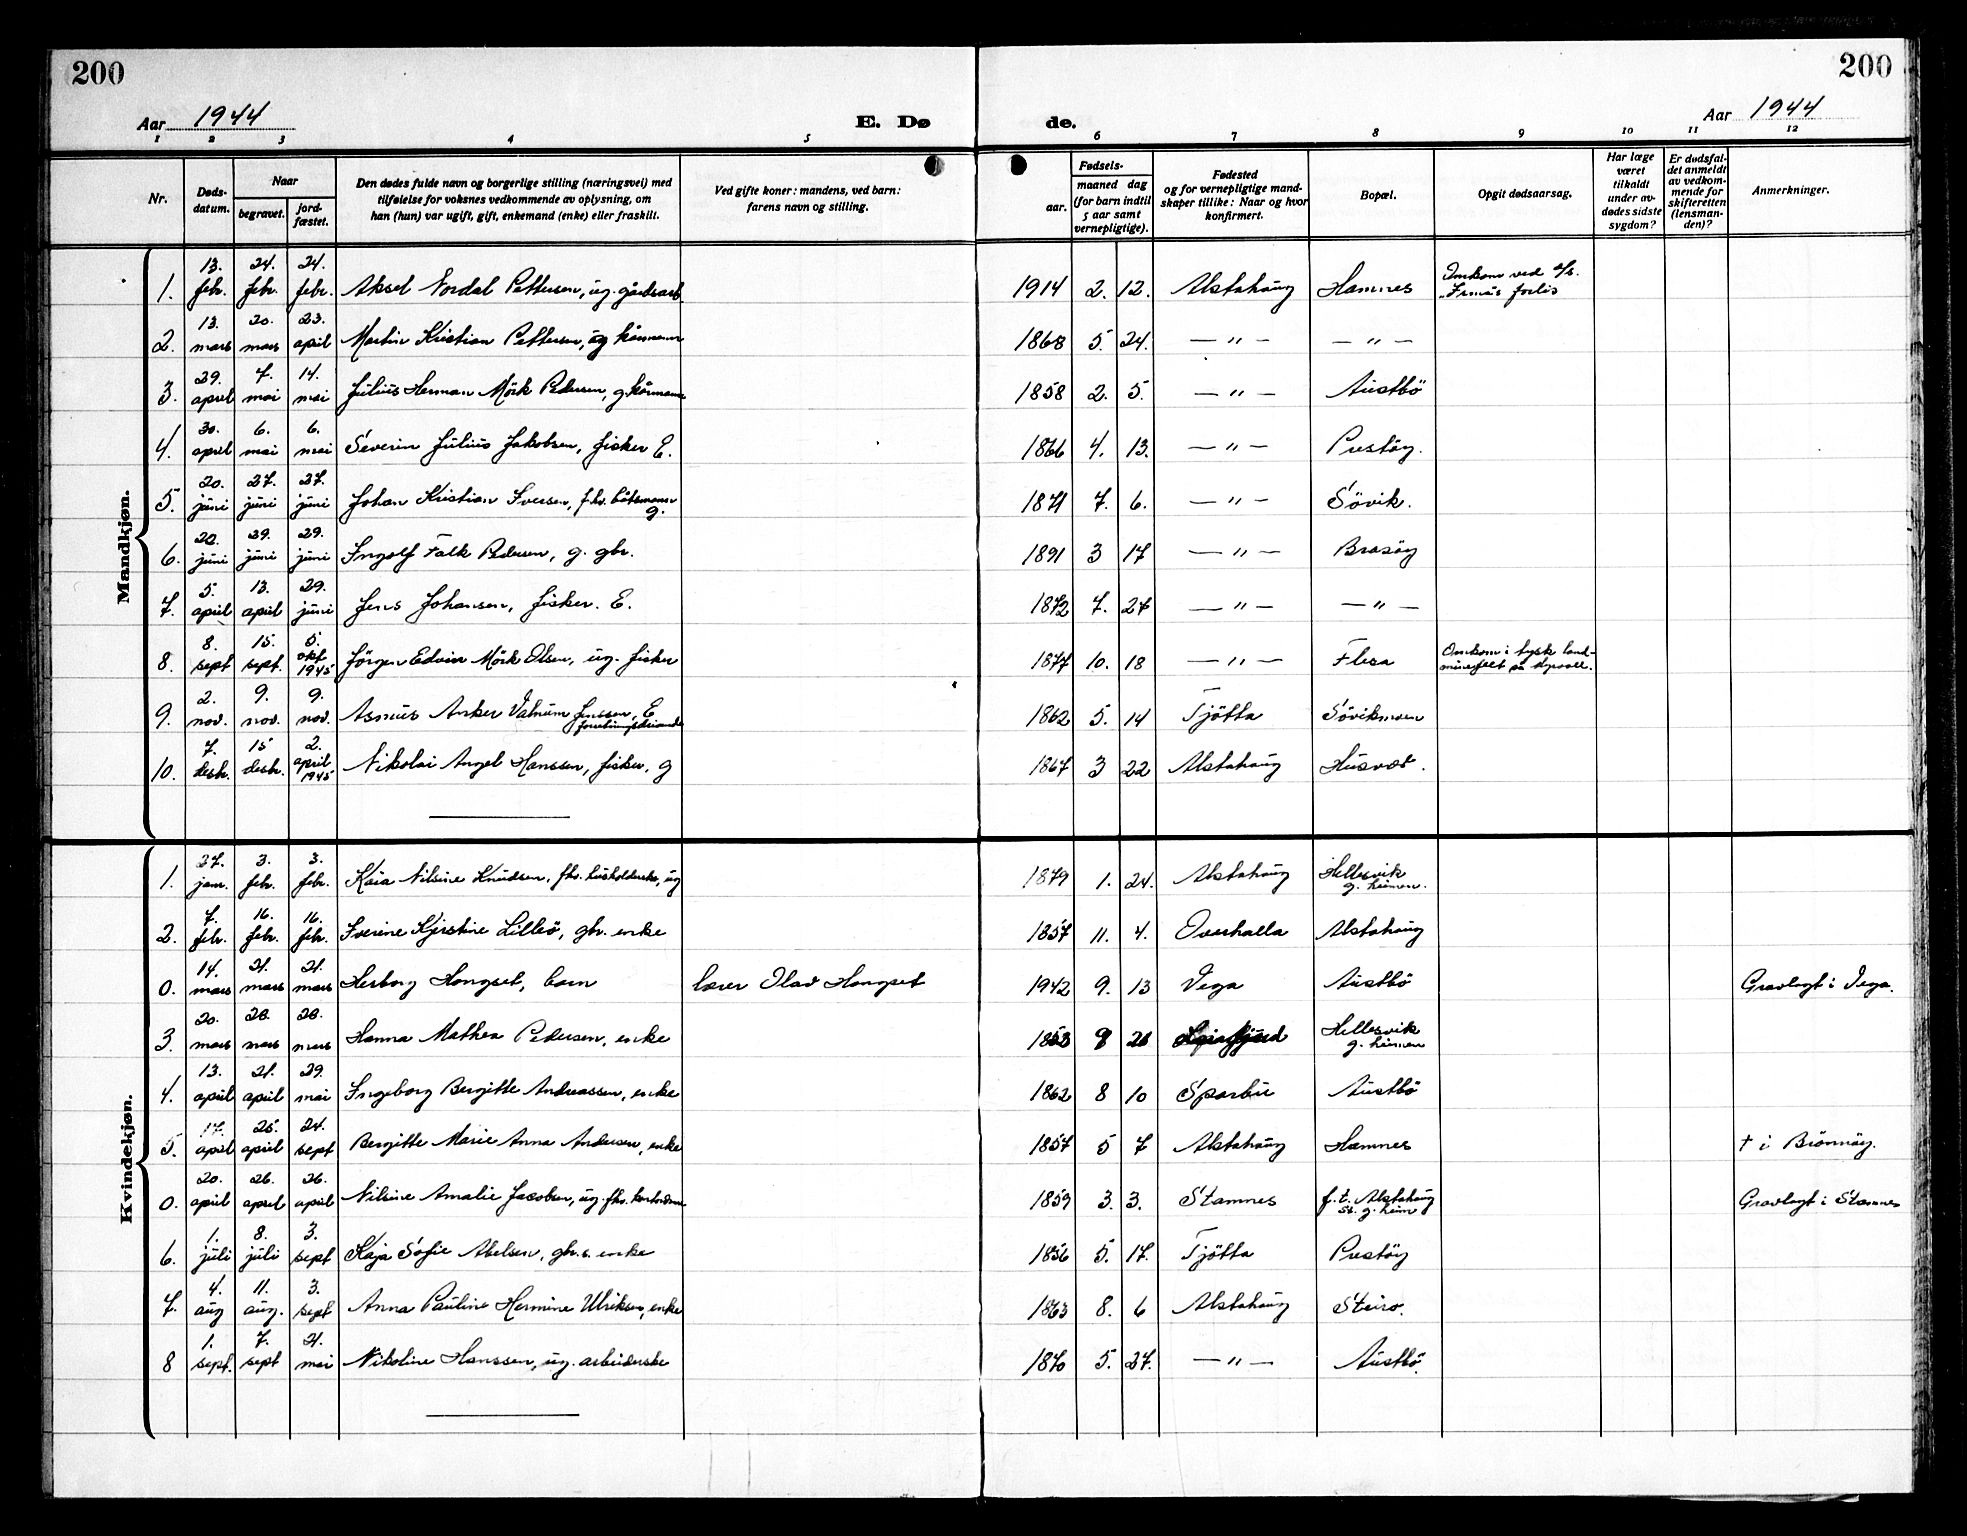 200
200
Aar 1944
E. Dø
de.
Aar 1944
1 2 3 4 5 6 7 8 9 10 11 12
Nr.
Døds-
datum.
Naar
begravet.
jord-
fæstet.
Den dødes fulde navn og borgerlige stilling (næringsvei) med
tilføielse for voksnes vedkommende av oplysning, om
han (hun) var ugift, gift, enkemand (enke) eller fraskilt.
Ved gifte koner: mandens, ved barn:
farens navn og stilling.
Fødsels-
aar.
maaned dag
(for barn indtil
5 aar samt
vernepligtige).
Fødested
og for vernepligtige mand-
skaper tillike: Naar og hvor
konfirmert.
Bopæl.
Opgit dødsaarsag.
Har læge
været
tilkaldt
under av-
dødes sidste
sygdom?
Er dødsfal-
det anmeldt
av vedkom-
mende for
skifteretten
(lensman-
den)?
Anmerkninger.
Mandkjøn.
13. 24. 24.
1. febr. febr. febr. Aksel Nordal Pettersen, ug. gårdsarb. 1914 2. 12. Alstahaug Hamnes Omkom ved d/s.
"Irma's forlis
13. 20. 23.
2. mars mars april Martin Kristian Pettersen, ug kårmann 1868 5. 24. — " — — " —
29. 7. 14.
3. april mai mai Julius Herman Mörk Pedersen, g. kårmann 1858 2. 5. — " — Austbö
30. 6. 6.
4. april mai mai Severin Julius Jakobsen, fisker E. 1866 4. 13. — " — Prestöy.
20. 27. 27.
5. juni juni juni Johan Kristian Iversen, fhv. båtsmann
g. 1871 7. 6. — " — Sövik.
22. 29. 29.
6. juni juni juni Ingolf Falk Pedersen, g. gbr. 1891 3 17 — " — Brasöy
5. 13. 29.
7. april april juni Jens Johansen, fisker. E. 1872 7. 27 — " — — " —
8. 15. 5.
8. sept sept. okt
1945 Jörgen Edvin Mörk Olsen, ug. fisker 1877 10. 18 — " — Flesa Omkom i tysk land-
minefelt på
2. 9. 9.
9. nov. nov. nov. Asmus Anker Valnum Jenssen, E
1862 5. 14 Tjötta Sövikmoen
7. 15 2.
10. desbr. desbr. april
1945 Nikolai Angel Hanssen, fisker, g 1867 3 22 Alstahaug Husvær.
Kvindekjøn.
27. 3. 3.
1. jan. febr. febr. Kaia Nilsine Knudsen, fhv. husholderske, ug 1879 1. 24. Alstahaug Hellesvik
g. heimen.
7. 16. 16.
2. febr. febr. febr. Iverine Kjerstine Lilleö, gbr. enke 1857 11. 4. Overhalla Alstahaug
14. 21. 21.
0. mars mars mars Herborg Hongset, barn lærer Olav Hongset 1942 9. 13 Vega Austbö Gravlagt i Vega.
20. 28. 28.
3. mars mars mars Hanna Mathea Pedersen, enke Hellesvik
g. heimen
13. 21. 29.
4. april april mai Ingeborg Bergitte Andreassen, enke 1862 8 10 Sparbu Austbö
17. 25. 24.
5. april april sept Bergitte Marie Anna Andersen, enke 1857 5 7 Alstahaug Hamnes † i Brönnöy.
20. 26. 26.
0. april april april Nilsine Amalie Jacobsen, ug. fhv. 1859 3. 3. Stamnes f. t. Alstahaug
st. g. heim Gravlagt i Stamnes
1. 8. 3.
6. juli juli sept Kaja Sofie Abelsen, gbr.s. enke 1856 5. 17. Tjötta Prestöy
4. 11. 3.
7. aug aug. sept Anna Pauline Hermine Ulriksen, enke 1863 8. 6 Alstahaug Steiro.
1. 7. 21.
8 sept. sept mai Nikoline Hanssen, ug. arbeiderske 1870 5. 27. — " — Austbö.